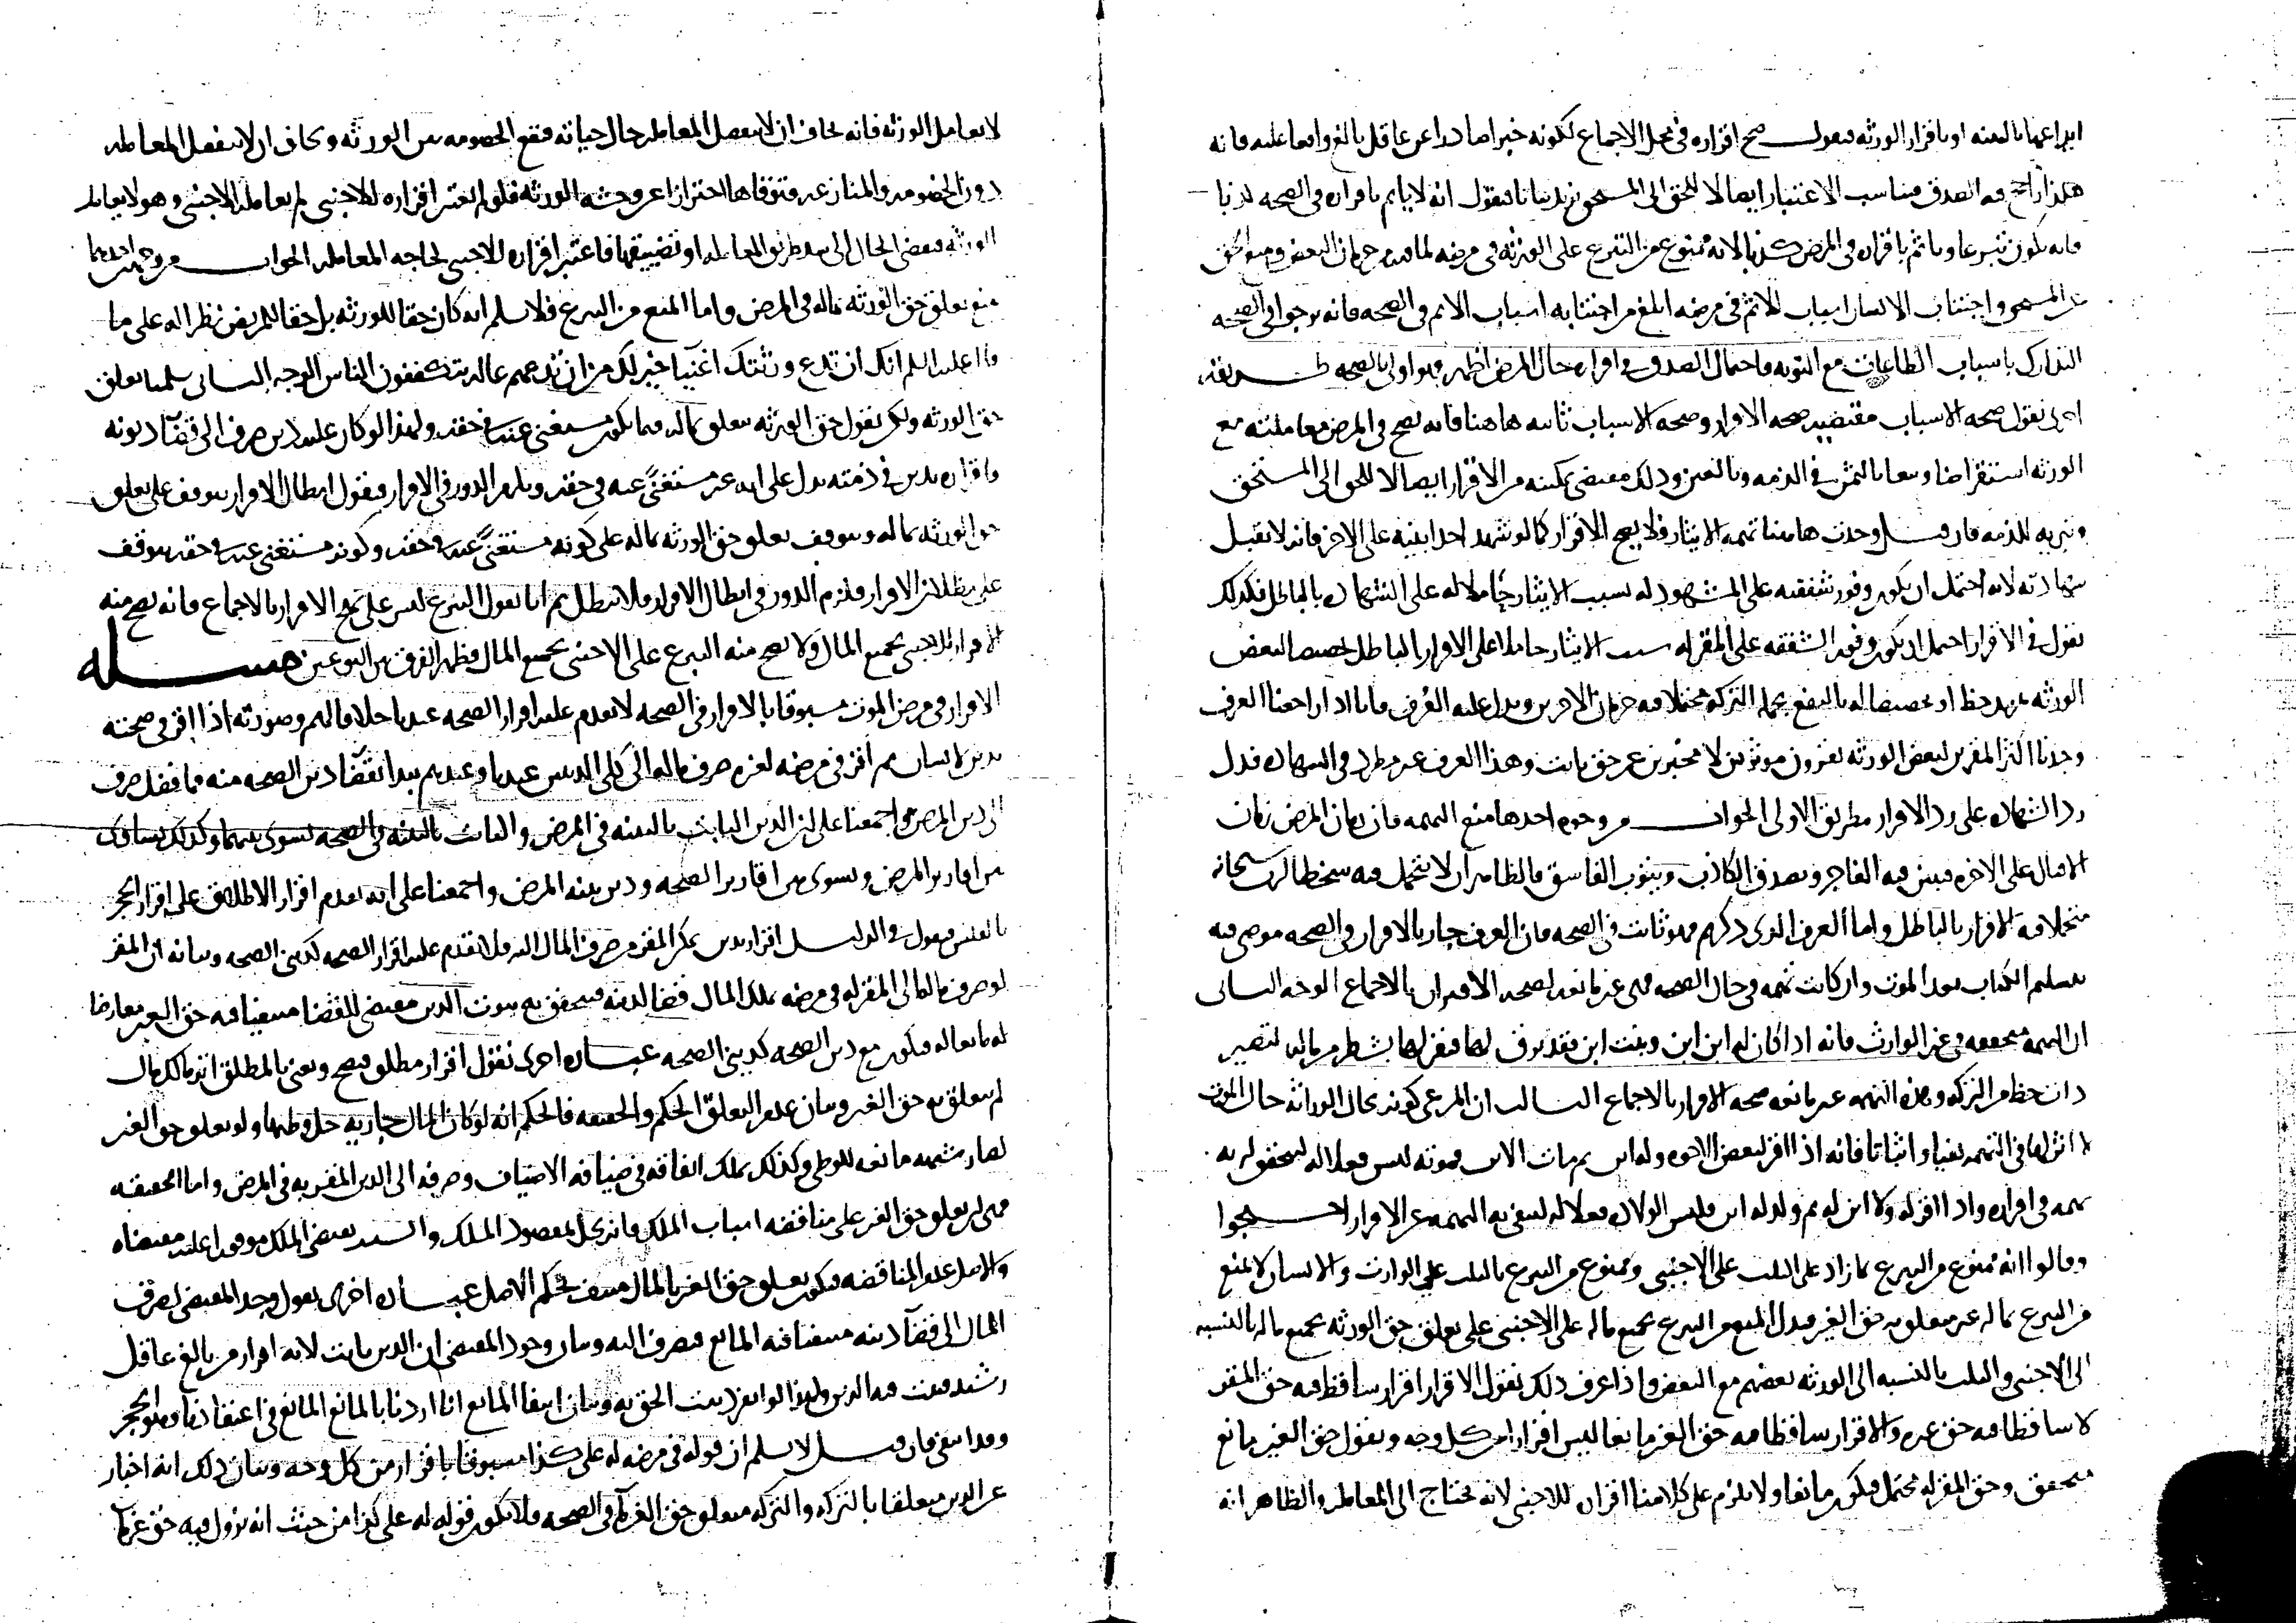 ابراعها بالبينه او باقرار الورثه فنقول صح اقراره في محل الاجماع لكونه خبرا صادرا عن عاقل بالغ واقعا عليه فانه
فيه الصدق فناسب الاعتبار ايصالا للحق الى المستحق بانا نقول انه لا ياثم باقراره في الصحه
فانه يكون تبرعا وياثم باقراره في المرض كذبا لانه ممنوع عن التبرع على الورثه في مرضه لما فيه من حرمان البعض
عن المستحق واجتناب الانسان اسباب الاثم في مرضه ابلغ من اجتنابه اسباب الاثم في الصحه فانه يرجوا في الصحه
التدارك باسباب الطاعات مع التوبه فاحتمال الصدق في اقراره حال المرض اظهر فهو اولى بالصحه طريقه
اخرى نقول صحه الاسباب مقتضيه صحه الاقرار وصحه الاسباب ثابته هاهنا فانه يصح في المرض معاملته مع
الورثه استقراضا وبيعا بالثمن في الذمه وبالعين وذلك مقتضى تمكينه من الاقرار ايصالا للحق الى المستحق
وتبريه للذمه فان قيل وجدت هاهنا تهمه الايثار فلا يصح الاقرار كما لو شهد احد ابنيه على الاخر فانه لا تقبل
شهادته لانه احتمل ان يكون وفور شفقته على المشهود له بسبب الايثار حاملا له على الشهاده بالباطل فكذلك
نقول في الاقرار احتمل ان يكون وفور الشفقه على المقر له بسبب الايثار حاملا على الاقرار بالباطل تخصيصا لبعض
الورثه بمزيد حظ او تخصيصا له بالبعض بجمله التركه محتملا فيه حرمان الاخرين ويدل عليه العرف فانا اذا راجعنا العرف
وجدنا اكثر المقرين لبعض الورثه يقرون موثرين لا مخبرين عن حق ثابت وهذا العرف غير مطرد في الشهاده فدل
رد الشهاده على رد الاقرار بطريق الاولى الجواب من وجوه احدها منع التهمه فان زمان المرض زمان
الاقبال على الاخره فيبر فيه الفاجر ويصدق الكاذب ويتوب الفاسق فالظاهر ان لا يتحمل فيه سخط الرب سبحانه
متحملا فيه الاقرار بالباطل واما العرف الذي ذكرتم فهو ثابت في الصحه فان العرف جار بالاقرار في الصحه موصى فيه
بتسليم الكتاب بعد الموت وان كانت تهمه في حال الصحه فهي غير مانعه لصحه الاقرار بالاجماع الوجه الثاني
ان التهمه متحققه في غير الوارث فانه اذا كان له ابن ابن وبنت ابن فيقر لها بشطر من ماله لتصير
ذات حظ من التركه وهذه التهمه غير مانعه صحه الاقرار بالاجماع الثالث ان المرعي كونه بحال الوراثه حال الموت
لا اثر لها في التهمه نفيا واثباتا فانه اذا اقر لبعض الاخوه وله ابن ثم مات الابن فموته ليس فعلا له ليتحقق له به
تهمه في اقراره واذا اقر له ولا ابن له ثم ولد له ابن فليس الولاده فعلا له لتنتفي به التهمه عن الاقرار احتجوا
وقالوا انه ممنوع من التبرع بما زاد على الثلث على الاجنبي وممنوع من التبرع بالثلث على الوارث والانسان لا يمنع
من التبرع بماله غير متعلق به حق الغير فيدل المنع من التبرع بجميع ماله على الاجنبي على تعلق حق الورثه بجميع ماله بالنسبه
الى الاجنبي والثلث بالنسبه الى الورثه بعضهم مع البعض واذا عرف ذلك نقول الاقرار اقرار ساقط فيه حق المقر
لا ساقطا فيه حق غيره والاقرار ساقطا فيه حق الغير مانعا ليس اقرارا من كل وجه ونقول حق الغير مانع
متحقق وحق المقر له محتمل فيكون مانعا ولا يلزم على كلامنا اقراره للاجنبي لانه محتاج الى المعامله والظاهر انه
لا يعامل الورثه فانه يخاف ان لا تنفصل المعامله حال حياته فتقع الخصومه بين الورثه ويخاف ان لا تنفصل المعامله
دون الخصومه والمنازعه فتوقاها احترازا عن وحشه الورثه فلو لم يعتبر اقراره للاجنبي لم يعامله الاجنبي وهو لا يعامل
الورثه فيفضي الحال الى سد طريق المعامله او تضييقها فاعتبر اقراره للاجنبي لحاجه المعامله الجواب من وجهين احدهما
منع تعلق حق الورثه بماله في المرض واما المنع من التبرع فلا نسلم انه كان حقا للورثه بل حقا للمريض نظرا له على ما
قال عليه السلم انك ان تدع ورثتك اغنيا خير لك من ان تدعهم عاله يتكففون الناس الوجه الثاني سلمنا تعلق
حق الورثه ولكن نقول حق الورثه تعلق بماله فيما يكون مستغنى عنه في حقه ولهذا لو كان عليه دين صرف الى قضآ ديونه
واقراره بدين في ذمته يدل على انه غير مستغنى عنه في حقه ويلزم الدور في الاقرار فنقول ابطال الاقرار يتوقف على تعلق
حق الورثه بماله ويتوقف تعلق حق الورثه بماله على كونه مستغنى عنه في حقه وكونه مستغنى عنه في حقه يتوقف
على بطلان الاقرار فلزم الدور في ابطال الاقرار فلا يبطل ثم انا نقول التبرع ليس على نهج الاقرار بالاجماع فانه يصح منه
الاقرار للاجنبي بجميع المال ولا يصح منه التبرع على الاجنبي بجميع المال فظهر الفرق بين النوعين مسله
الاقرار في مرض الموت مسبوقا بالاقرار في الصحه لا يقدم عليه اقرار الصحه عندنا خلافا لهم وصورته اذا اقر في صحته
بدين لانسان ثم اقر في مرضه لغيره صرف ماله الى كلي الدينين عندنا وعندهم يبدا بقضآ دين الصحه منه فما فضل صرف
الى دين المرض واجمعنا على ان الدين الثابت بالبينه في المرض والثابت بالبينه في الصحه يسوى بينهما وكذلك يساوى
بين اقارير المرض ويسوى بين اقارير الصحه ودين بينه المرض واجمعنا على انه يقدم اقرار الاطلاق على اقرار الحجر
بالفلس فنقول في الدليل اقرار بدين يمكن المقر من صرف المال اليه فلا يقدم عليه اقرار الصحه كديني الصحه وبيانه ان المقر
لو صرف ماله الى المقر له في مرضه ملك المال قضا لدينه فيتحقق به ثبوت الدين مقتضى للقضا منتفيا فيه حق الغير معارضا
له مانعا له فيكون مع دين الصحه كديني الصحه عباره اخرى نقول اقرار مطلق فيصح ونعني بالمطلق انه مالك مال
لم يتعلق به حق الغير وبيان عدم التعلق الحكم والحقيقه فالحكم انه لو كان المال جاريه حل وطيها ولو تعلق حق الغير
لصار شبهه مانعه للوطي وكذلك يملك انفاقه في ضيافه الاضياف وصرفه الى الدين المقر به في المرض واما الحقيقه
فهي ان تعلق حق الغير على مناقضه اسباب الملك فانه يخل بمقصود الملك والسبب يقتضي الملك موفورا عليه مقتضاه
والاصل عدم المناقضه فيكون تعلق حق الغير بالمال منتف بحكم الاصل عباره اخرى نقول وجد المقتضي لصرف
المال الى قضآ دينه منتفيا فيه المانع فيصرف اليه وبيان وجود المقتضي ان الدين ثابت لانه اقرار من بالغ عاقل
رشيد فيثبت فيه الدين ولهذا لو انفرد يثبت الحق به وبيان انتفا المانع انا اردنا بالمانع المانع في اعتقادنا وهو الحجر
وقد انتفى فان قيل لا نسلم ان قوله في مرضه له علي كذا مسبوقا باقرار من كل وجه وبيان ذلك انه اخبار
عن الدين متعلقا بالتركه والتركه متعلق حق الغرمآ في الصحه فلا يكون قوله له علي كذا من حيث انه يزول فيه حق غرمآ